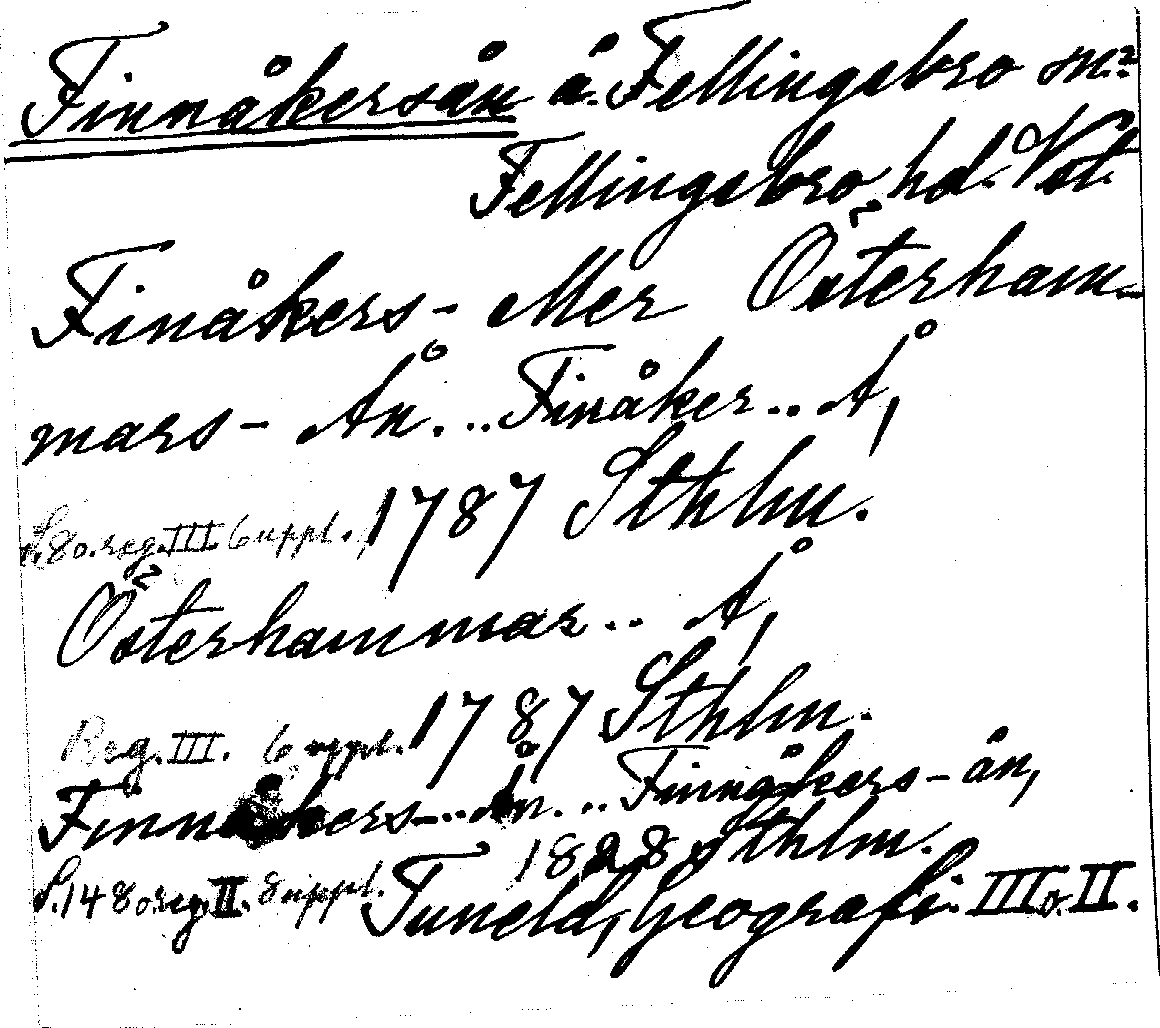 Finnåkersån å. Fellingsbro sn.
Fellingsbro hd. Vstl.
Finåkers- eller Österham-
mars- Ån... Finåker.. Å,
S. 8 o. reg. III. 6 uppl. 1787 Sthlm.
Österhammar.. Å,
Reg. III. 6 uppl. 1787 Sthlm.
Finnåkers-..ån... Finnåkers-ån,
1828 Sthlm.
S. 148 o. reg. II. 8 uppl. Tuneld, Geografi. III o. II.